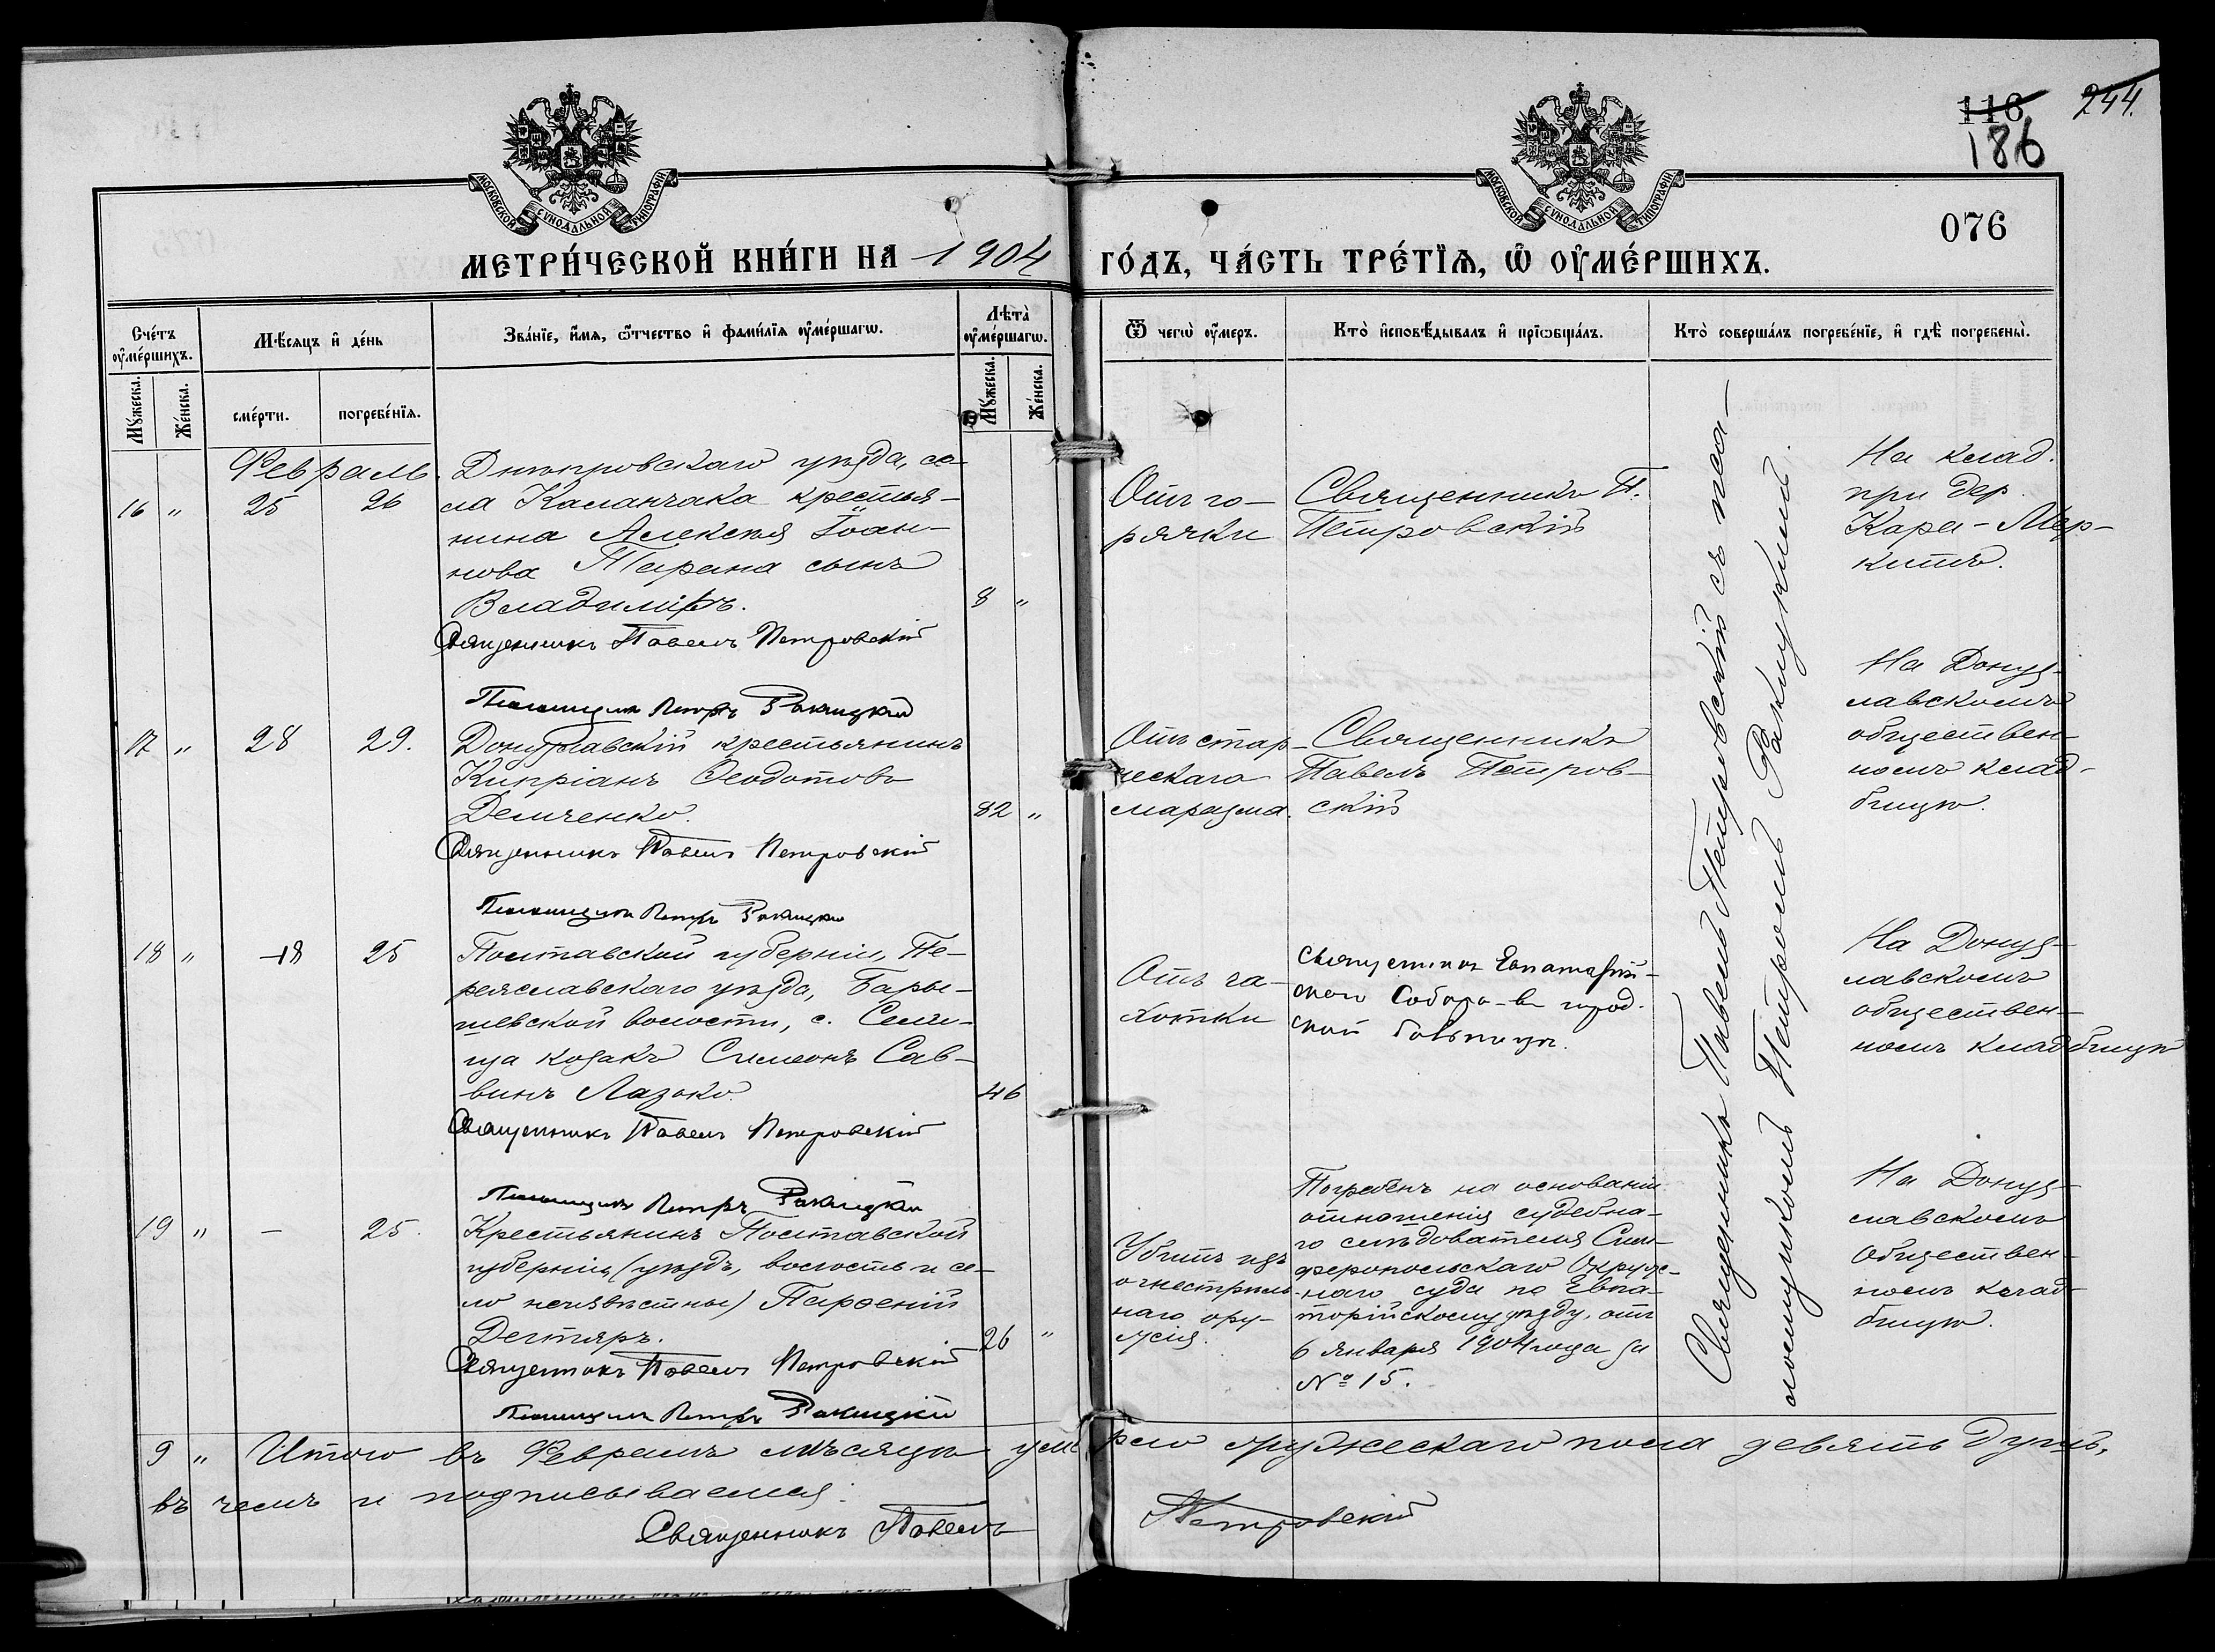 116 244.
186
076
МОСКОВСКОЙ СУНОДАЛЬНОЙ ТИПОГРАФІИ
МОСКОВСКОЙ СУНОДАЛЬНОЙ ТИПОГРАФІИ
МЕТРИ́ЧЕСКОЙ КНИ́ГИ НА 1904 ГО́ДЪ, ЧА́СТЬ ТРЕ́ТЇѦ, Ѽ ОУ҆МЕ́РШИХЪ.
Сче́тъ оу҆ме́ршихъ.
Мꙋ́жеска.
Же́нска.
Мѣ́сѧцъ и҆ де́нь
сме́рти.
погребе́нїѧ.
Зва́нїе, и҆́мѧ, ѻ҆́тчество и҆ фами́лїѧ оу҆ме́ршагѡ.
Лѣ̑та̀ оу҆ме́ршагѡ.
Мꙋ́жеска.
Же́нска.
Ѿ чегѡ̀ оу҆́меръ.
Кто̀ и҆сповѣ́дывалъ и҆ прїѡбща́лъ.
Кто̀ соверша́лъ погребе́нїе, и҆ гдѣ̀ погребены̀.
Февраль.
16 " 25 26
Днѣпровскаго уѣзда, се-
ла Каланчака крестья-
нина Алексѣя Іоан-
нова Тарана сынъ
Владиміръ. 8 "
Священникъ Павелъ Петровскій
Псаломщикъ Петръ Ракицкій
Отъ го-
рячки
Священникъ П.
Петровскій
На клад.
при дер.
Кара-Мер-
китъ.
17 " 28 29.
Донузлавскій крестьянинъ
Кипріанъ Ѳеодотовъ
Демченко. 82 "
Священникъ Павелъ Петровскій
Псаломщикъ Петръ Ракицкій
Отъ стар-
ческаго
маразма.
Священникъ
Павелъ Петров-
скій
На Донуз-
лавскомъ
обществен-
номъ клад-
бищѣ.
18 " 18 25
Полтавской губерніи, Пе-
реяславскаго уѣзда, Бары-
шевской волости, с. Селі-
ща козакъ Симеонъ Сав-
винъ Лазько 46
Священникъ Павелъ Петровскій
Псаломщикъ Петръ Ракицкій
Отъ ча-
хотки
Священникъ Евпаторій-
скаго Собора въ город.
ской больницѣ.
На Донуз-
лавскомъ
обществен-
номъ кладбищѣ
19 " - 25.
Крестьянинъ Полтавской
губерніи, (уѣздъ, волость и се-
ло неизвѣстны) Парѳеній
Дегтяръ. 26 "
Священникъ Павелъ Петровскій
Псаломщикъ Петръ Ракицкій
Убитъ изъ
огнестрѣль-
наго ору-
жія.
Погребенъ на основаніи
отношенія судебна-
го слѣдователя Сим-
феропольскаго Окруж-
наго суда по Евпа-
торійскому уѣзду, отъ
6 января 1904 года за
№ 15.
На Донуз-
лавскомъ
Обществен-
номъ клад-
бищѣ.
Священникъ Павелъ Петровскій съ пса-
ломщикомъ Петромъ Ракицкимъ.
9 " Итого въ Февралѣ мѣсяцѣ умерло мужескаго пола девять душъ,
въ чемъ и подписываемся:
Священникъ Павелъ Петровскій